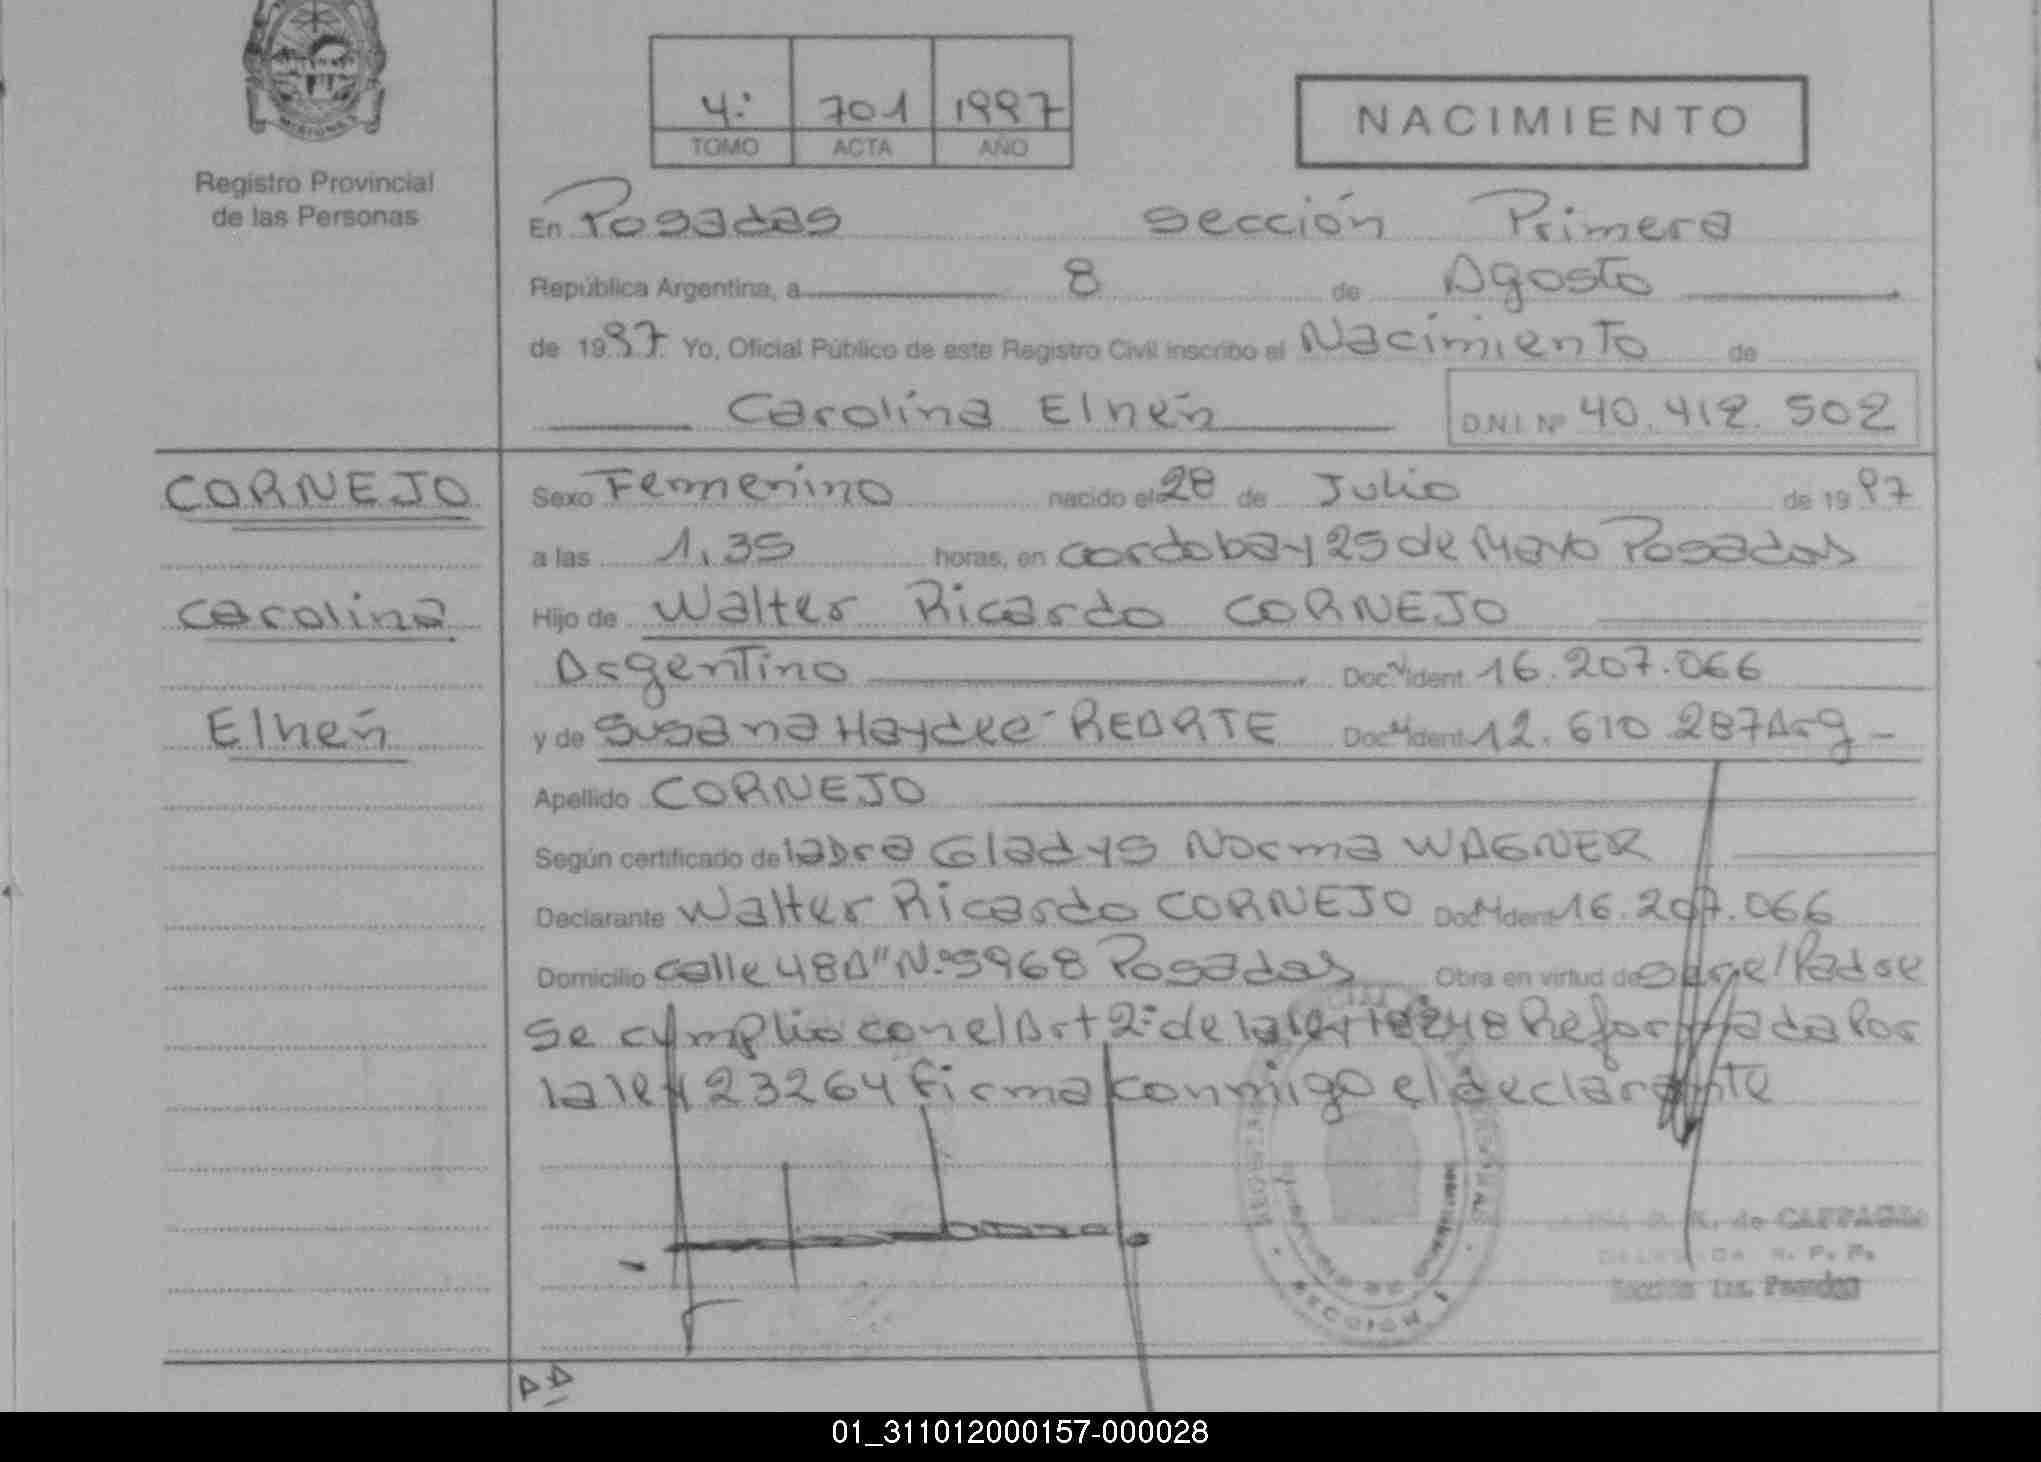 MISIONES
Registro Provincial
de las Personas
4º 701 1997
TOMO ACTA AÑO
NACIMIENTO
En Posadas sección Primera
República Argentina, a 8 de Agosto
de 1997 Yo, Oficial Público de este Registro Civil inscribo el Nacimiento de
Carolina Elheñ
D.N.I. Nº 40.412.502
CORNEJO
Carolina
Elheñ
Sexo Femenino nacido el 28 de Julio de 1997
a las 1,35 horas, en cordoba y 25 de Mayo Posadas
Hijo de Walter Ricardo CORNEJO
Argentino Doc. Ident. 16.207.066
y de Susana Haydeé REARTE Doc. Ident. 12.610.287 Arg
Apellido CORNEJO
Según certificado de la Dra Gladys Norma WAGNER
Declarante Walter Ricardo CORNEJO Doc. Ident. 16.207.066
Domicilio calle 48 A" Nº 5968 Posadas Obra en virtud de ser el Padre
Se cumplio con el Art 2º de la ley 18248 Reformada Por
la ley 23264 firma conmigo el declarante
de CAFFARO
DELEGADA R. P. P.
Sección 1ra. Posadas
SECCION 1
AA
01_311012000157-000028